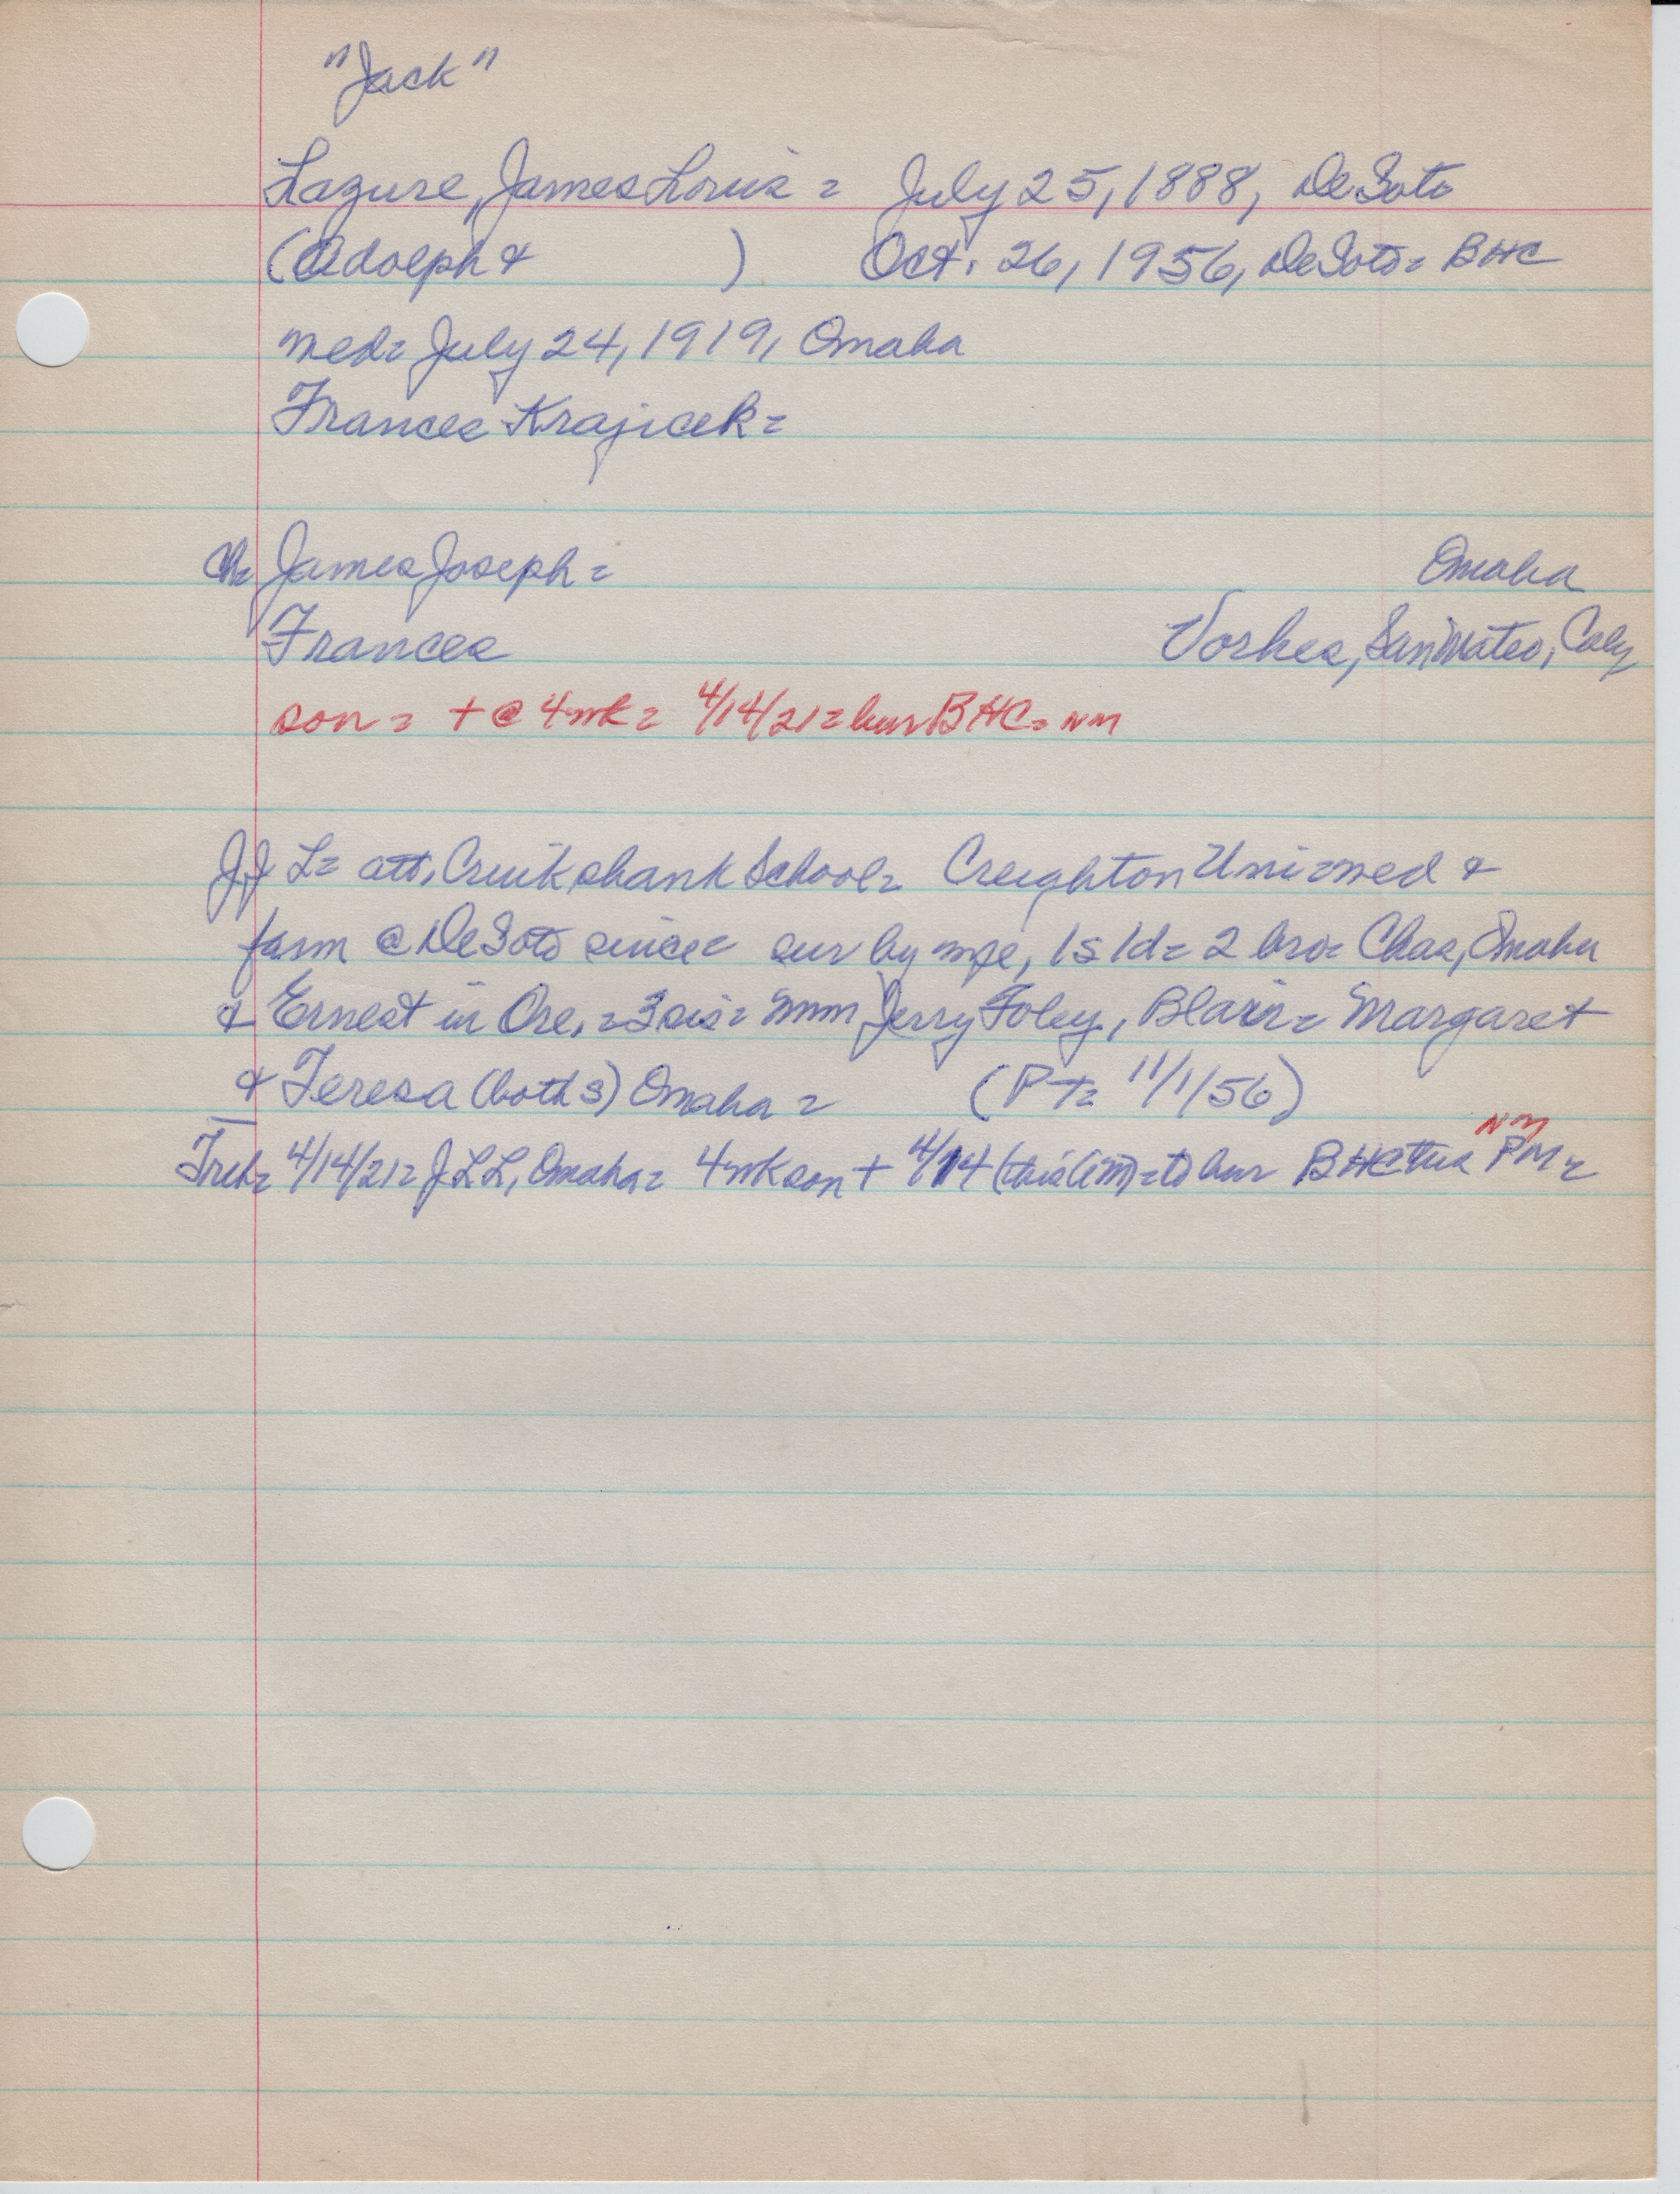 "Jack"
Lazure, James Louis = July 25, 1888, DeSoto
(Adolph & ) Oct. 26, 1956, DeSoto = BHC
med = July 24, 1919, Omaha
Frances Krajicek =
Ch = James Joseph = Omaha
Frances Vorhes, San Mateo, Calif
son = + @ 4 wk = 4/14/21 = bur BHC = NM
L = att. Cruikshank School = Creighton Uni = med &
farm @ DeSoto since = sur by wife, 1s 1d = 2 bro = Chas, Omaha
& Ernest in Ore. = 3 sis = Jerry Foley, Blair = Margaret
& Teresa (both s) Omaha = (PT = 11/1/56)
4/14/21 = JLL, Omaha = 4 wk son + 4/14 (this = to bur BHC this PM =
NM